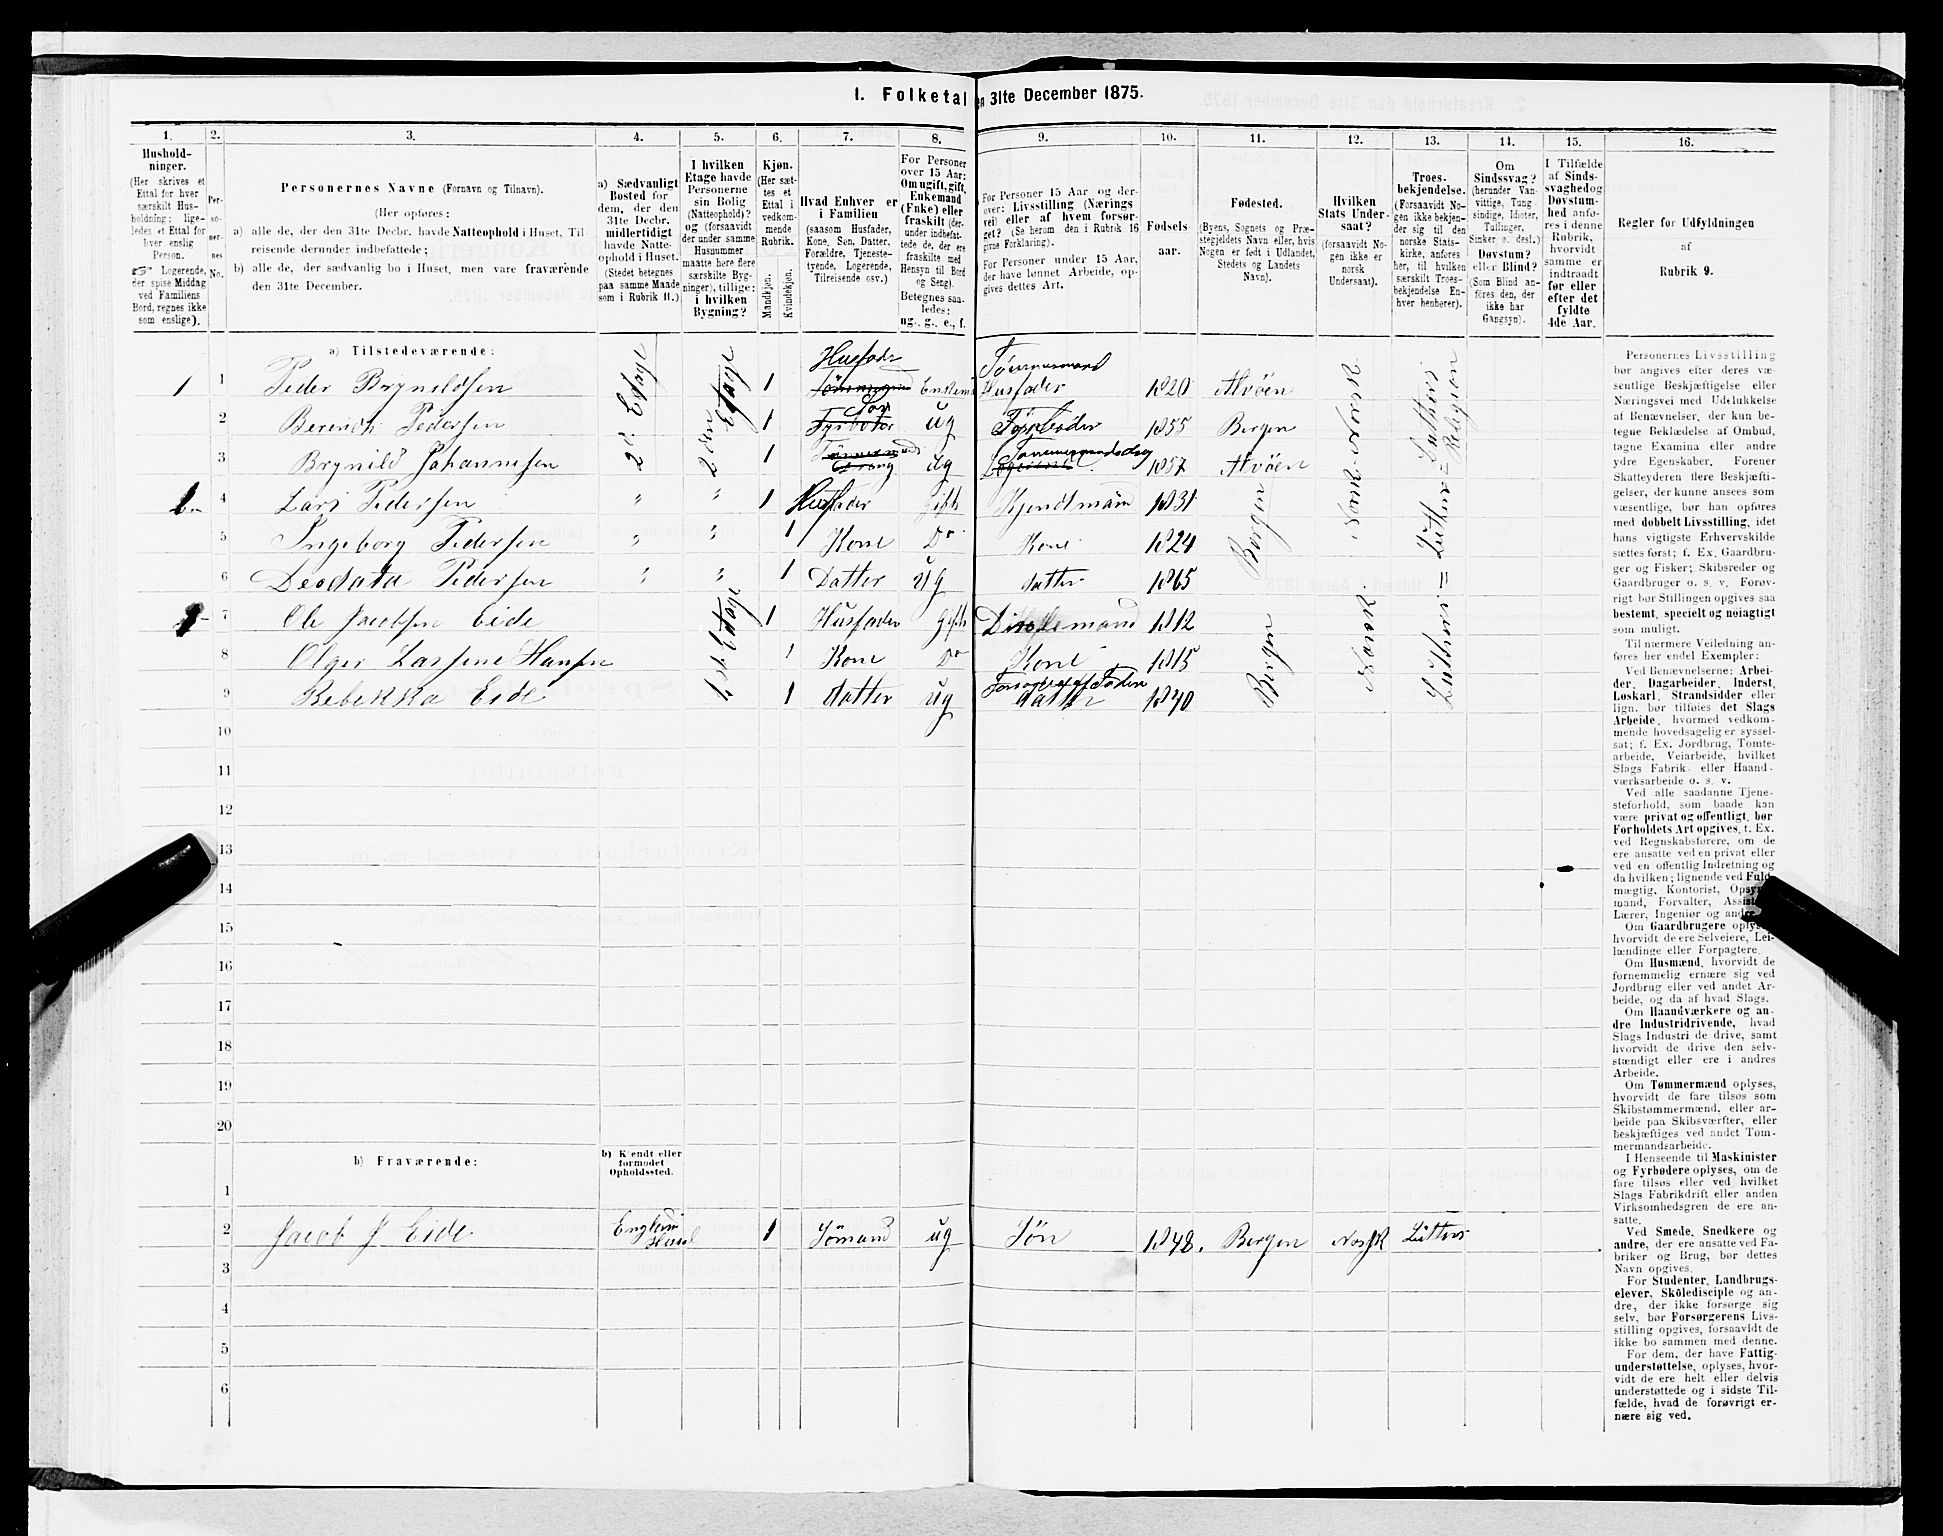 1. Folketal
en 31te December 1875.
1. 2. 3. 4. 5. 6. 7. 8. 9. 10. 11. 12. 13. 14. 15. 16.
Hushold-
ninger.
(Her skrives et
Ettal for hver
særskilt Hus-
holdning; lige-
ledes et Ettal for
hver enslig
Person.
☞ Logerende,
der spise Middag
ved Familiens
Bord, regnes ikke
som enslige).
Per-
so-
ner-
nes
No.
Personernes Navne (Fornavn og Tilnavn).
(Her opføres:
a) alle de, der den 31te Decbr. havde Natteophold i Huset, Til-
reisende derunder indbefattede;
b) alle de, der sædvanlig bo i Huset, men vare fraværende
den 31te December.
a) Sædvanligt
Bosted for
dem, der den
31te Decbr.
midlertidigt
havde Natte-
ophold i Huset.
(Stedet betegnes
paa samme Maade
som i Rubrik 11.)
I hvilken
Etage havde
Personerne
sin Bolig
(Natteophold)?
og (forsaavidt
der under samme
Husnummer
maatte høre flere
særskilte Byg-
ninger), tillige:
i hvilken
Bygning?
Kjøn.
(Her sæt-
tes et
Ettal i
vedkom-
mende
Rubrik.
Mandkjøn.
Kvindekjøn.
Hvad Enhver er
i Familien
(saasom Husfader,
Kone, Søn, Datter,
Forældre, Tjeneste-
tyende, Logerende,
Tilreisende osv.)
For Personer
over 15 Aar:
Om ugift, gift,
Enkemand
(Enke) eller
fraskilt (der-
under indbefat-
tede de, der ere
fraskilte med
Hensyn til Bord
og Seng).
Betegnes saa-
ledes:
ug., g., e., f.
For Personer 15 Aar og der-
over: Livsstilling (Nærings
vei) eller af hvem forsør-
get? (Se herom den i Rubrik 16
givne Forklaring).
For Personer under 15 Aar,
der have lønnet Arbeide, op-
gives dettes Art.
Fødsels-
aar.
Fødested.
(Byens, Sognets og Præ-
stegjeldets Navn eller, hvis
Nogen er født i Udlandet,
Stedets og Landets
Navn).
Hvilken
Stats Under-
saat?
(forsaavidt No-
gen ikke er
norsk
Undersaat).
Troes-
bekjendelse.
(Forsaavidt No-
gen ikke bekjen-
der sig til den
norske Stats-
kirke, anføres
her, til hvilken
særskilt Troes-
bekjendelse En-
hver henhører).
Om
Sindssvag?
(herunder Van-
vittige, Tung-
sindige, Idioter,
Tullinger,
Sinker o. desl.)
Døvstum?
eller Blind?
(Som Blind an-
føres den, der
ikke har
Gangsyn).
I Tilfælde
af Sinds-
svaghed og
Døvstum-
hed anfø-
res i denne
Rubrik,
hvorvidt
samme er
indtraadt
før eller
efter det
fyldte
4de Aar.
Regler for Udfyldningen
af
Rubrik 9.
a) Tilstedeværende:
1 1 Peder Brynildsen 2d. Etage 2den Etage 1 Husfader Enkem Tømmermand Husfader 1820 Alvöen Norsk Luthers Religion
2 Berendt Pedersen 1 Søn Fyrböder ug Fyrböder 1855 Bergen
3 Brynild Johannesen 1 ug 1857 Alvöen
4 Lars Pedersen " " 1 Husfader Gift Kjendtmand 1831 Bergen
5 Ingeborg Pedersen " " 1 Kone Do Kone 1824
6 Deodata Pedersen " " 1 Datter ug datter 1865
7 Ole Jacobsen Eide Etage 1 Husfader gift 1812 Bergen Norsk Luthers
8 Olger Larsene Hansen 1 Kone Do Kone 1815
9 Rebekka Eide 1 datter ug Forsørges af Faderen datter 1840
10
11
12
13
14
15
16
17
18
19
20
b) Fraværende:
b) Kjendt eller
formodet
Opholdssted.
1
2 Jacob J Eide 1 Sömand ug Sön 1848. Bergen Norsk Luthers
3
4
5
6
Personernes Livsstilling
bør angives efter deres væ-
sentlige Beskjæftigelse eller
Næringsvei med Udelukkelse
af Benævnelser, der kun be-
tegne Beklædelse af Ombud,
tagne Examina eller andre
ydre Egenskaber. Forener
Skatteyderen flere Beskjæfti-
gelser, der kunne ansees som
væsentlige, bør han opføres
med dobbelt Livsstilling, idet
hans vigtigste Erhvervskilde
sættes først; f. Ex. Gaardbru-
ger og Fisker; Skibsreder og
Gaardbruger o. s. v. Forøv-
rigt bør Stillingen opgives saa
bestemt, specielt og nøiagtigt
som muligt.
Til nærmere Veiledning an-
føres her endel Exempler:
Ved Benævnelserne: Arbei-
der, Dagarbeider, Inderst,
Løskarl, Strandsidder eller
lign. bør tilføies det Slags
Arbeide, hvormed vedkom-
mende hovedsagelig er syssel-
sat; f. Ex. Jordbrug, Tomte-
arbeide, Veiarbeide, hvilket
Slags Fabrik- eller Haand-
værksarbeide o. s. v.
Ved alle saadanne Tjene-
steforhold, som baade kan
være privat og offentligt, bør
Forholdets Art opgives, t. Ex.
ved Regnskabsførere, om de
ere ansatte ved en privat eller
ved en offentlig Indretning og
da hvilken; lignende ved Fuld-
mægtig, Kontorist, Opsyns-
mand, Forvalter, Assistent,
Lærer, Ingeniør og andre.
Om Gaardbrugere oplyses,
hvorvidt de ere Selveiere, Lei-
lændinge eller Forpagtere.
Om Husmænd, hvorvidt de
fornemmelig ernære sig ved
Jordbrug eller ved andet Ar-
beide, og da af hvad Slags.
Om Haandværkere og an-
dre Industridrivende, hvad
Slags Industri de drive, samt
hvorvidt de drive den selv-
stændigt eller ere i andres
Arbeide.
Om Tømmermænd oplyses,
hvorvidt de fare tilsøs som
Skibstømmermænd, eller ar-
beide paa Skibsværfter, eller
beskjæftiges ved andet Tøm-
mermandsarbeide.
I Henseende til Maskinister
og Fyrbødere oplyses, om de
fare tilsøs eller ved hvilket
Slags Fabrikdrift eller anden
Virksomhedsgren de ere an-
satte.
Ved Smede, Snedkere og
andre, der ere ansatte ved Fa-
briker og Brug, bør dettes
Navn opgives.
For Studenter, Landbrugs-
elever, Skoledisciple og an-
dre, der ikke forsørge sig
selv, bør Forsørgerens Livs-
stilling opgives, forsaavidt de
ikke bo sammen med denne.
For dem, der have Fattig-
understøttelse, oplyses, hvor-
vidt de ere helt eller delvis
understøttede og i sidste Til-
fælde, hvad de forøvrigt er-
nære sig ved.